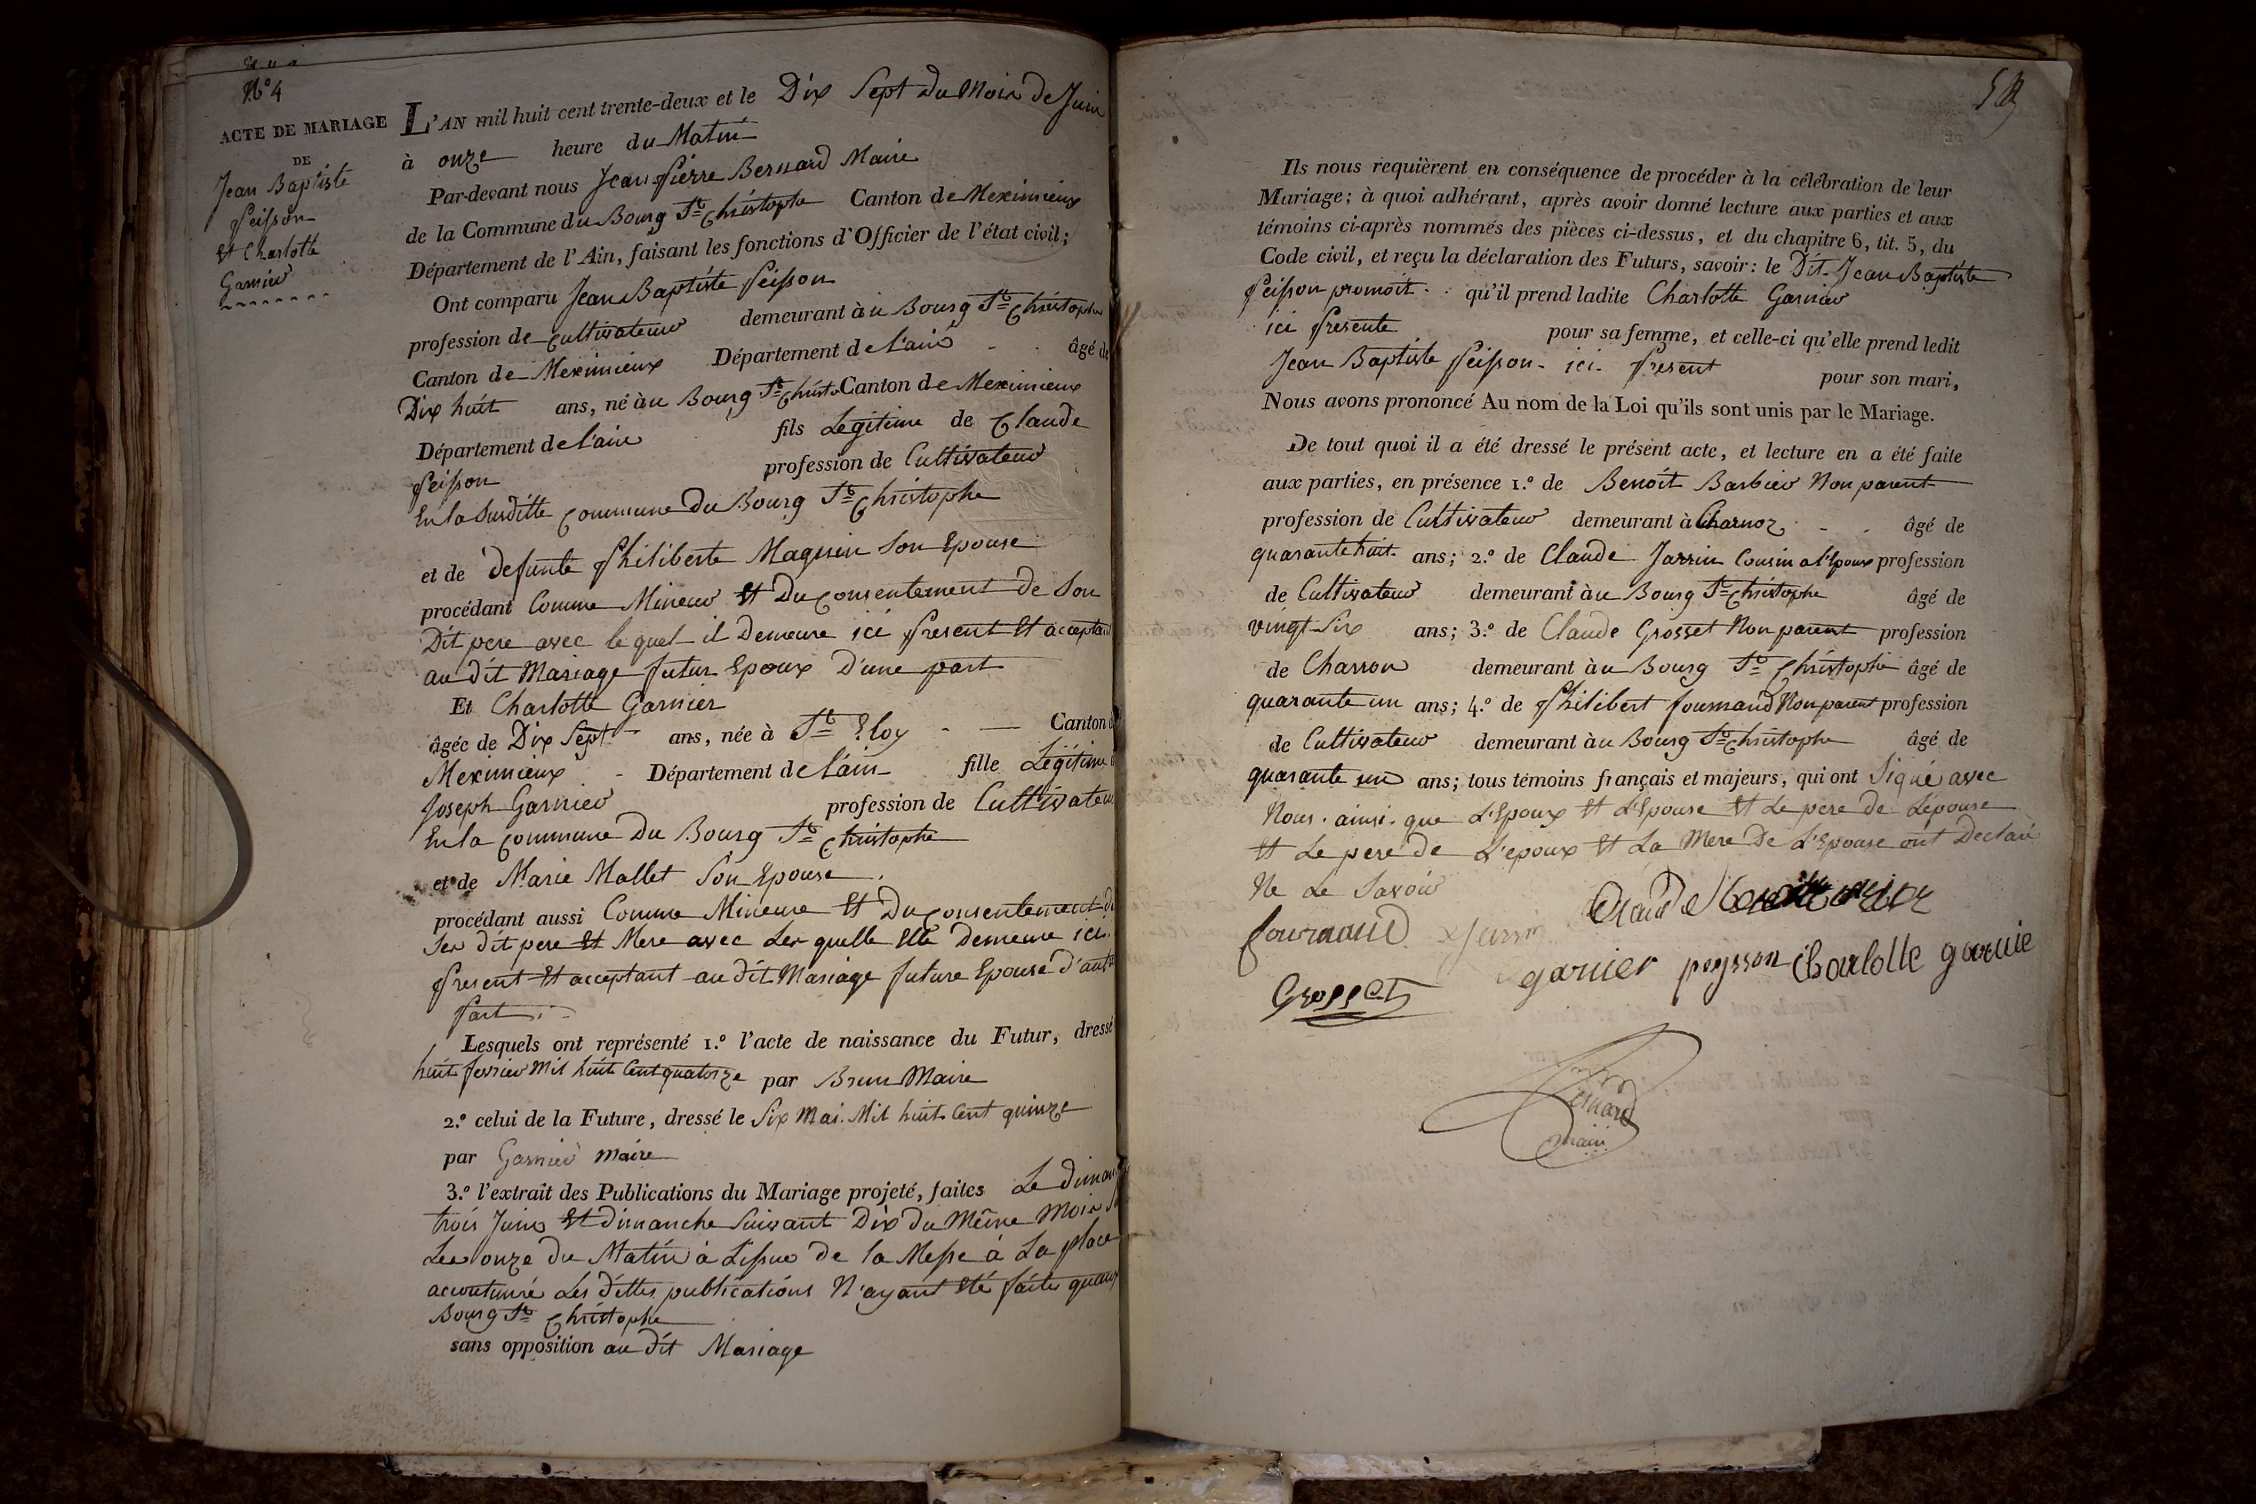 N.º 4
ACTE DE MARIAGE
DE
Jean Baptiste
Peisson
Et Charlotte
Garnier
L'AN mil huit cent trente-deux et le Dix Sept du Mois de Juin
à onze heure du Matin
Par-devant nous Jean Pierre Bernard Maire
de la Commune du Bourg St Christophe Canton de Meximieux
Département de l'Ain, faisant les fonctions d'Officier de l'état civil;
Ont comparu Jean Baptiste Peisson
profession de Cultivateur demeurant à u Bourg St Christophe
Canton de Meximieux Département de l'ain âgé de
Dix huit ans, né à u Bourg St Christo Canton de Meximieux
Département de l'ain fils Legitime de Claude
Peisson profession de Cultivateur
En la Susditte Commune du Bourg St Christophe
et de defunte Philiberte Maguin Son Epouse
procédant Comme Mineur Et Du consentement de Son
Dit pere avec le quel il Demeure ici Present Et acceptant
au dit Mariage futur Epoux D'une part
Et Charlotte Garnier
âgée de Dix Sept ans, née à St Eloy Canton
Meximieux Département de l'ain fille Légitime
Joseph Garnier profession de Cultivateur
En la Commune Du Bourg St Christophe
et de Marie Mallet Son Epouse
procédant aussi Comme Mineure Et Du consentement de
Ses dit pere Et Mere avec Les quelle Elle Demeure ici
Present Et acceptant au dit Mariage future Epouse d'autre
Part
Lesquels ont représenté 1.º l'acte de naissance du Futur, dressé
huit fevrier Mil huit Cent quatorze par Brun Maire
2.º celui de la Future, dressé le Six Mai Mil huit Cent quinze
par Garnier maire
3.º l'extrait des Publications du Mariage projeté, faites Le diman
trois Juin Et dimanche Suivant Dix du Même Mois
Les onze du Matin à L'issue de la Messe à La place
accoutumé Les dittes publications N'ayant Eté faites quau
Bourg St Christophe
sans opposition au dit Mariage
Ils nous requièrent en conséquence de procéder à la célébration de leur
Mariage; à quoi adhérant, après avoir donné lecture aux parties et aux
témoins ci-après nommés des pièces ci-dessus, et du chapitre 6, tit. 5, du
Code civil, et reçu la déclaration des Futurs, savoir: le Dit Jean Baptiste
Peisson promoit qu'il prend ladite Charlotte Garnier
ici Presente pour sa femme, et celle-ci qu'elle prend ledit
Jean Baptiste Peisson ici Present pour son mari,
Nous avons prononcé Au nom de la Loi qu'ils sont unis par le Mariage.
De tout quoi il a été dressé le présent acte, et lecture en a été faite
aux parties, en présence 1.º de Benoit Barbier Non parent
profession de Cultivateur demeurant à Charnoz âgé de
quarante huit ans; 2.º de Claude Jarrin Cousin a l'Epoux profession
de Cultivateur demeurant à u Bourg St Christophe âgé de
vingt Six ans; 3.º de Claude Grosset Non parent profession
de Charron demeurant à u Bourg St Christophe âgé de
quarante un ans; 4.º de Philibert fournand Non parent profession
de Cultivateur demeurant à u Bourg St Christophe âgé de
quarante un ans; tous témoins français et majeurs, qui ont Signé avec
Nous ainsi que L'Epoux Et L'Epouse Et Le pere de Lépouse
Et Le pere de L'epoux Et La Mere De L'Epouse ont Declaré
Ne Le Savoir
fournand Jarrin
garnier peysson charlotte garnie
Grosset
Bernard
maire